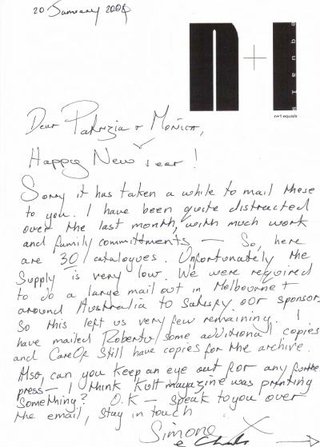 20 January 200
n+1
equals
n+1 equals
Dear Patrizia + Monica,
Happy New Year!
Sorry it has taken a while to mail these
to you. I have been quite distracted
over the last month, with much work
and family commitments — So, here
are 30 catalogues. Unfortunately the
supply is very low. We were required
to do a large mail out in Melbourne +
around Australia to satisfy our sponsor.
So this left us very few remaining. I
have mailed Roberto some additional copies
and CareOf still have copies for the archive.
Also, can you keep an eye out for any further
press — I think Kult magazine was printing
something? O.K — speak to you over
the email, stay in touch
Simone X